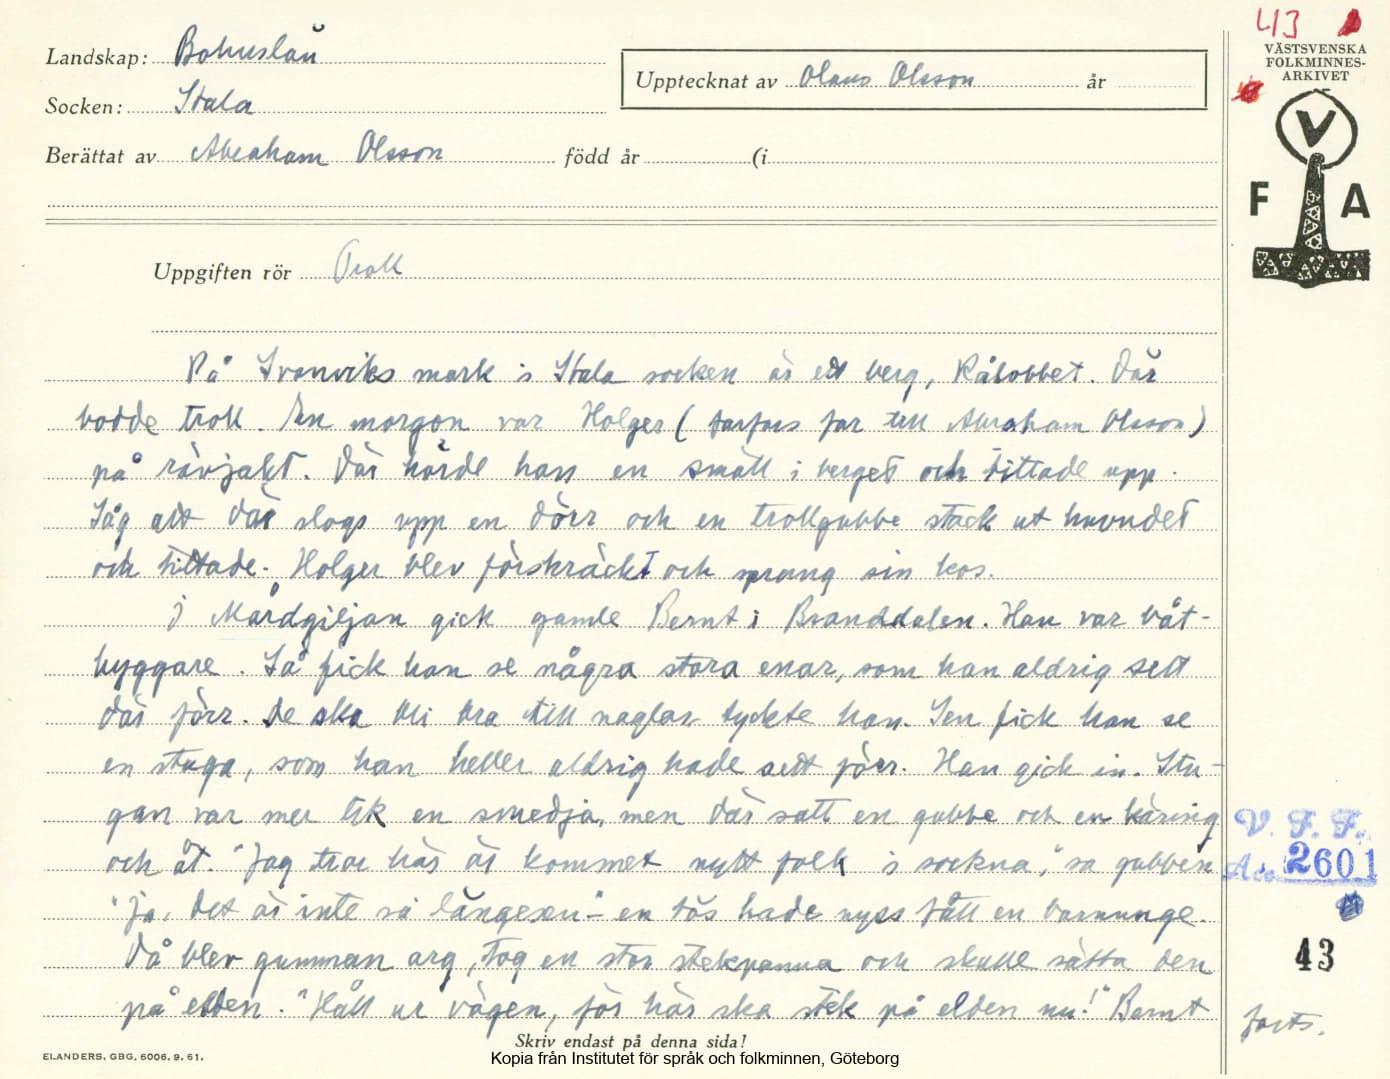 43
VÄSTSVENSKA
FOLKMINNES-
ARKIVET
V
F A
Landskap: Bohuslän
Socken: Stala
Upptecknat av Olaus Olsson år
Berättat av Abraham Olsson född år (i
Uppgiften rör Troll
På Svanviks mark i Stala socken är ett berg, Råbobbet. Där
bodde troll. En morgon var Holger (farfars far till Abraham Olsson)
på rävjakt. Där hörde han en smäll i berget och tittade upp.
Såg att där slogs upp en dörr och en trollgubbe stack ut huvudet
och tittade. Holger blev förskräckt och sprang sin kos.
I Mårdgiljan gick gamle Bernt i Branddalen. Han var båt-
byggare. Så fick han se några stora enar, som han aldrig sett
där förr. De ska bli bra till naglar tyckte han. Sen fick han se
en stuga, som han heller aldrig hade sett förr. Han gick in. Stu-
gan var mer lik en smedja, men där satt en gubbe och en käring
och åt. "Jag tror här är kommet nytt folk i sockna," sa gubben
"Ja, det är inte så längesen" - en tös hade nyss fått en barnunge.
Då blev gumman arg, tog en stor stekpanna och skulle sätta den
på elden. "Håll ur vägen, för här ska stek på elden nu!" Bernt
V. F. F.
Acc. 2601
43
forts.
Skriv endast på denna sida!
ELANDERS. GBG. 6006. 9. 61.
Kopia från Institutet för språk och folkminnen, Göteborg